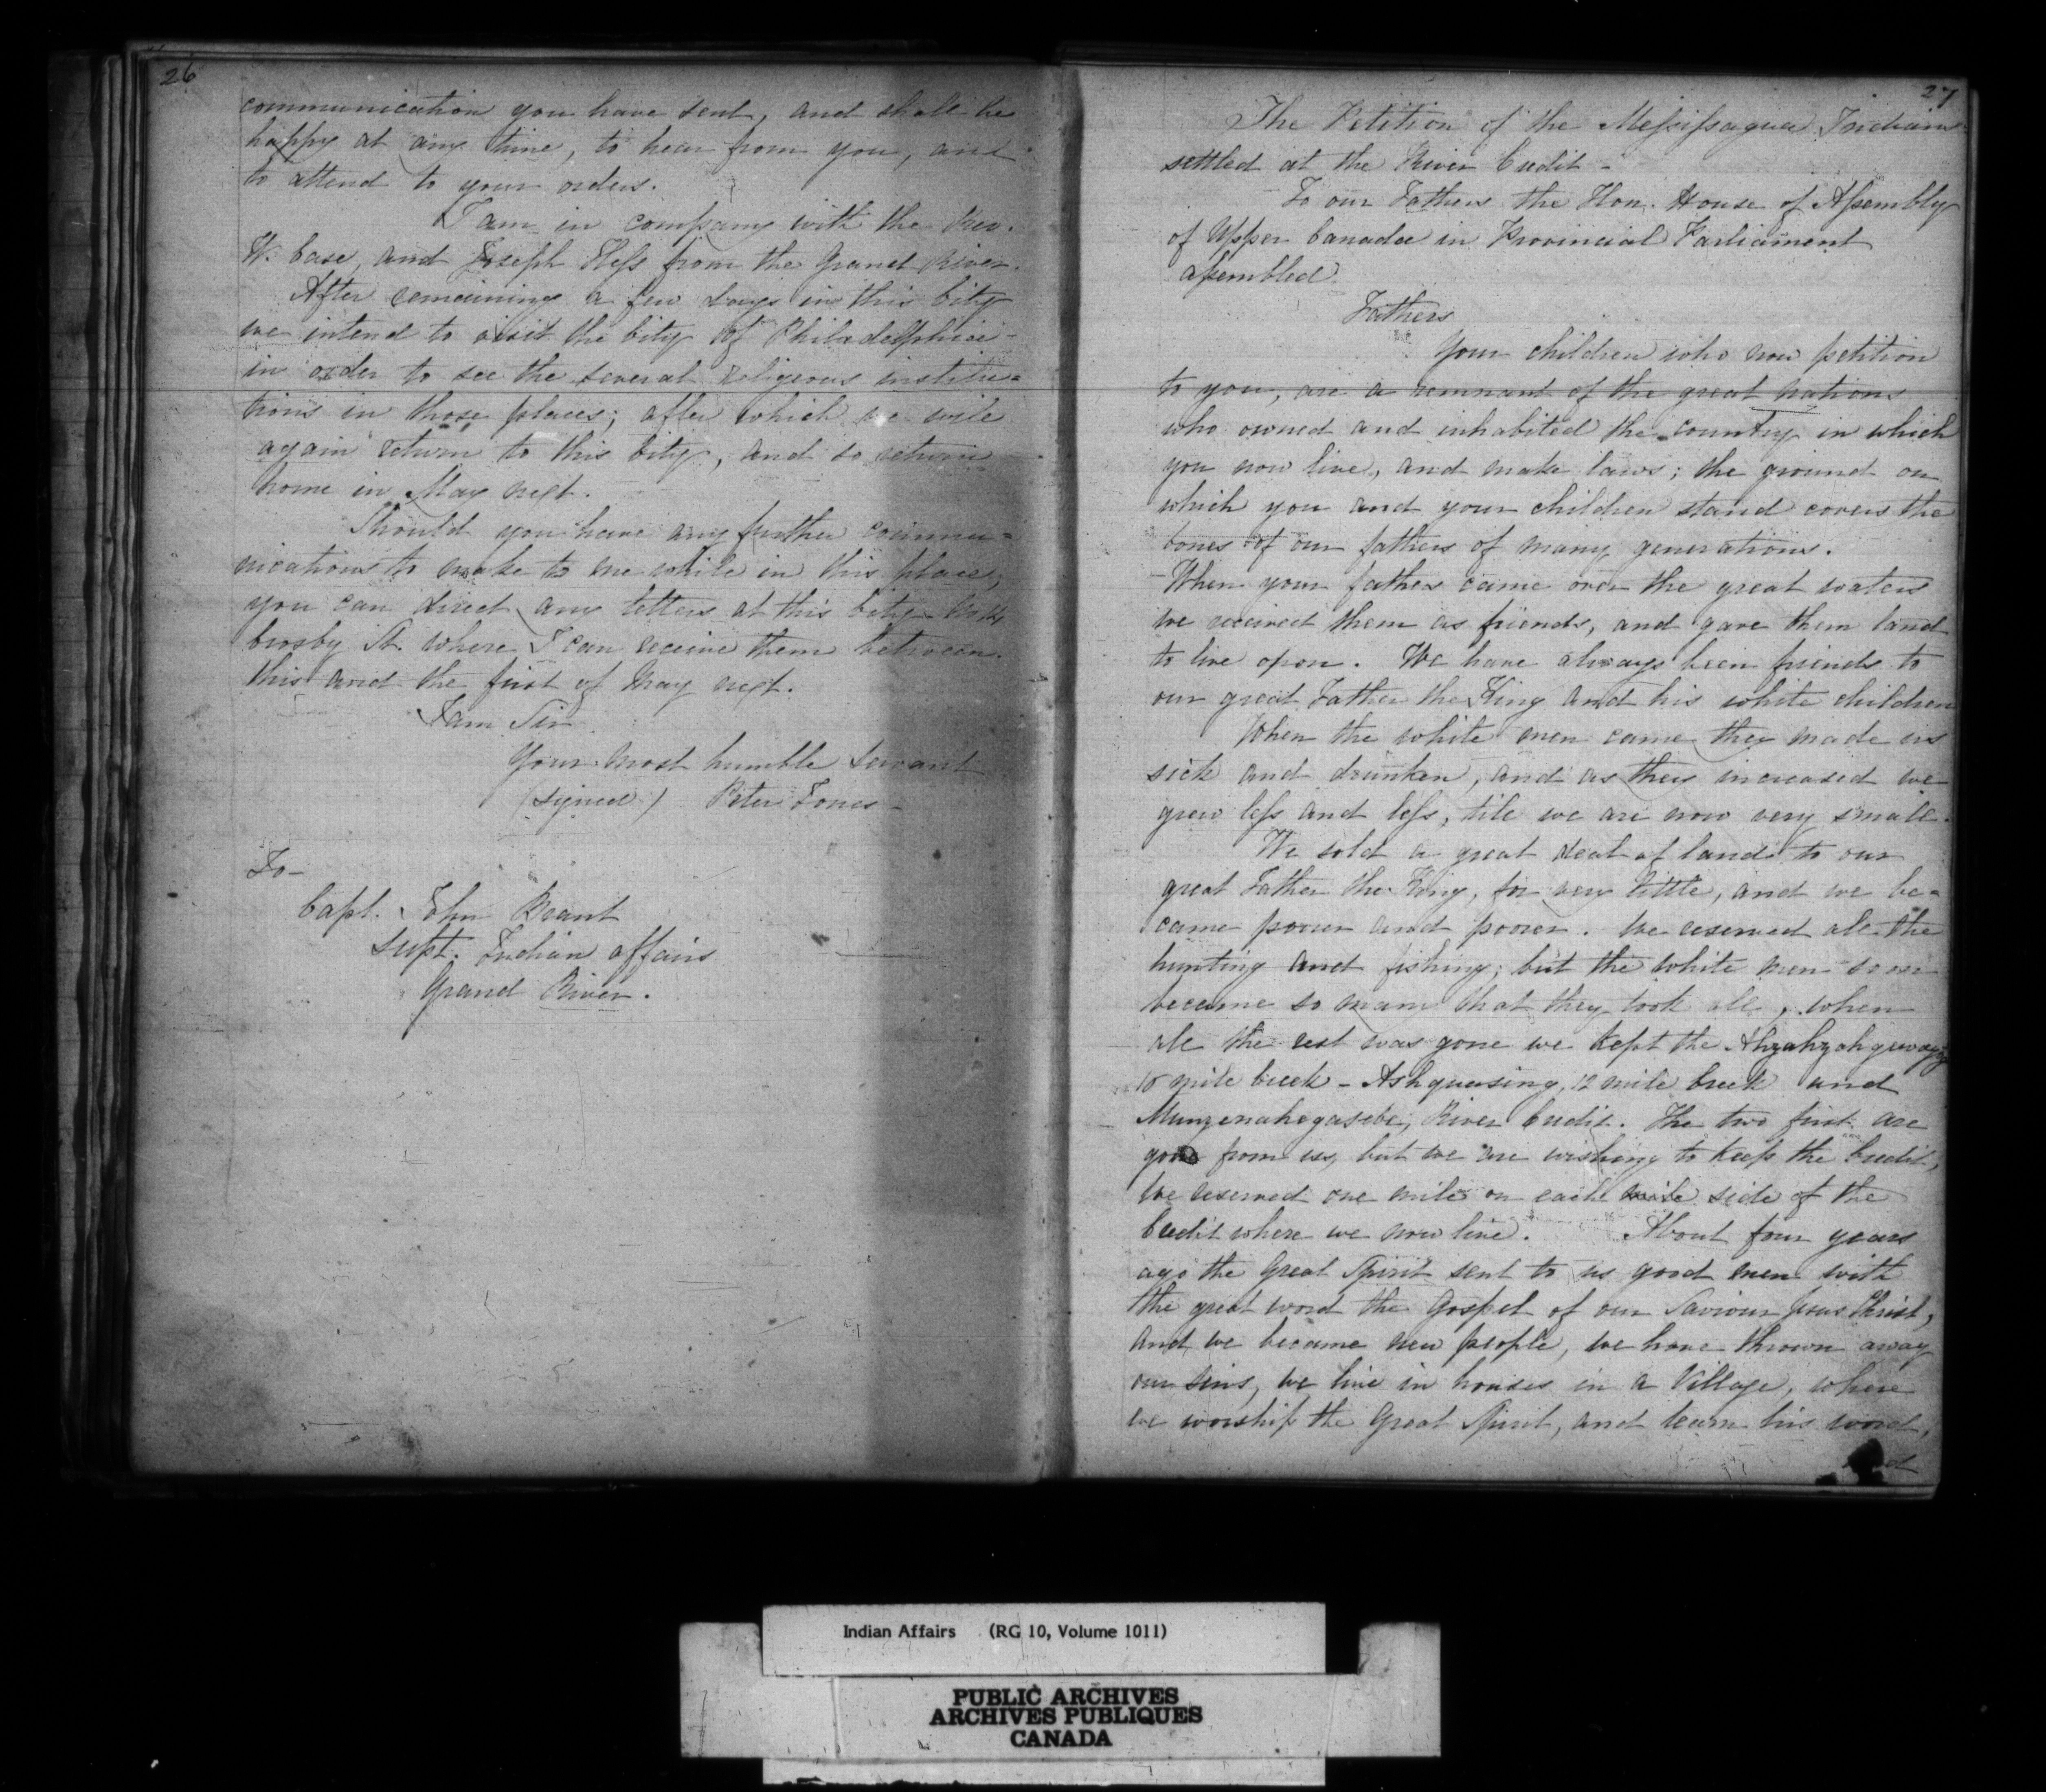 26
communication you have sent, and shall be
happy at any time, to hear from you, and
to attend to your orders.
I am in company with the Rev.
W. Case, and Joseph Hess from the Grand River.
After remaining a few days in this City
we intend to visit the City of Philadelphia
in order to see the several religeous institu=
tions in those places; after which we will
again return to this City, and so return
home in May next.
Should you have any further commu=
nications to make to me while in this place,
you can direct any letters at this City
Crosby St. where I can receive them between
this and the first of May next.
I am Sir
Your most humble Servant
(signed) Peter Jones
To
Capt. John Brant
Supt. Indian affairs
Grand River.
27
The Petition of the Messissagua Indians
settled at the River Credit -
To our Fathers the Hon. House of Assembly
of Upper Canada in Provincial Parliament
assembled
Fathers
Your children who now petition
to you, are a remnant of the great nations
who owned and inhabited the country in which
you now live, and make laws; the ground on
which you and your children stand covers the
bones of our fathers of many generations.
When your fathers came over the great waters
we received them as friends, and gave them land
to live upon. We have always been friends to
our great Father the King and his white children
When the white men came they made us
sick and drunken, and as they increased we
grew less and less, till we are now very small.
We sold a great deal of land to our
great Father the King, for very little, and we be=
came poorer and poorer. We reserved all the
hunting and fishing; but the white men soon
became so many that they took all, when
all the rest was gone we kept the
16 mile Creek - Ashquasing, 12 mile Creek and
River Credit. The two first are
gone from us, but we are wishing to keep the Credit,
We reserved one mile on each mile side of the
Credit where we now live. About four years
ago the Great Spirit sent to us good men with
the great word the Gospel of our Saviour Jesus Christ,
and we became new people, we have thrown away
our sins, we live in houses in a Village, where
we worship the Great Spirit, and learn his word,
Indian Affairs (RG 10, Volume 1011)
PUBLIC ARCHIVES
ARCHIVES PUBLIQUES
CANADA